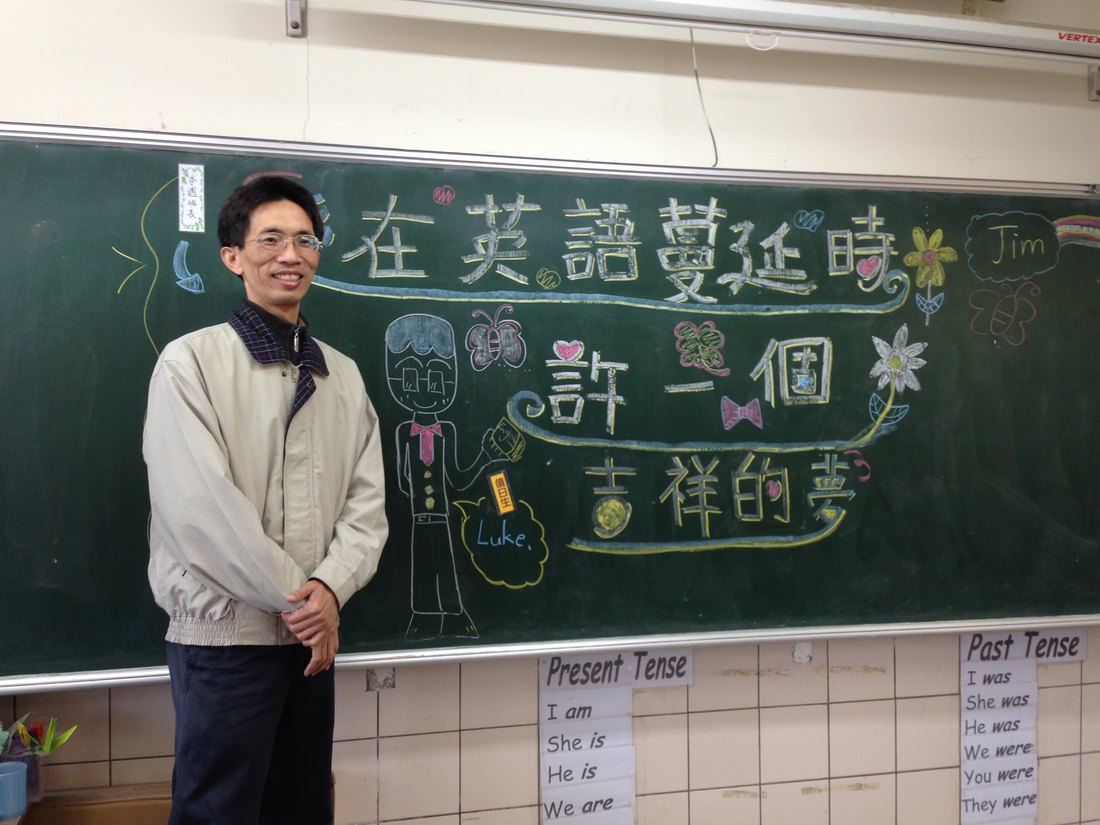 VERTEX
本週班長
在英語蔓延時
Jim
許一個
吉祥的夢
值日生
Luke.
Present Tense
I am
She is
He is
We are
Past Tense
I was
She was
He was
We were
You were
They were